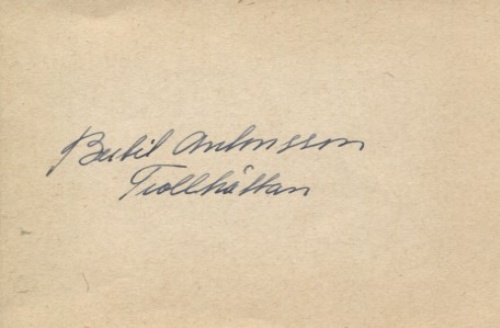 Bertil Antonsson
Trollhättan